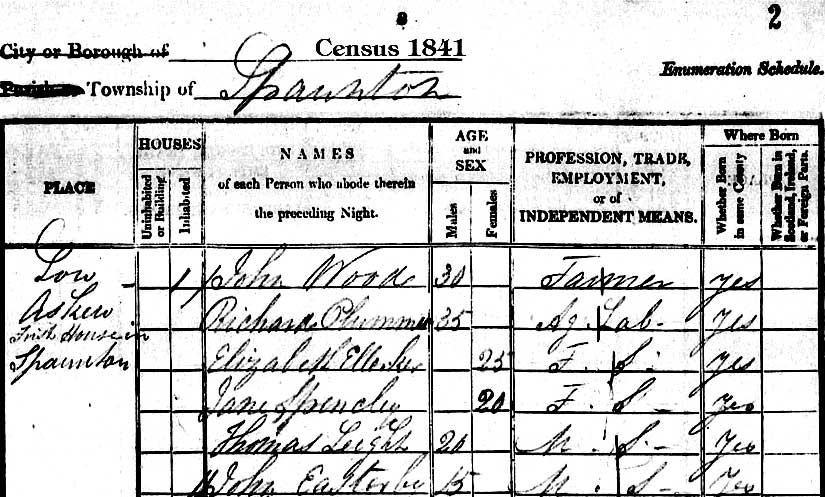 2
City or Borough of
Census 1841
Parish or Township of Spaunton
Enumeration Schedule.
PLACE
HOUSES
Uninhabited or Building
Inhabited
NAMES
of each Person who abode therein
the preceding Night.
AGE
and
SEX
Males
Females
PROFESSION, TRADE,
EMPLOYMENT,
or of
INDEPENDENT MEANS.
Where Born
Whether Born in same County
Whether Born in Scotland, Ireland, or Foreign Parts.
Low 1 John Wood 30 Farmer Yes
Askew Richard Plummer 35 Ag. Lab Yes
First House in
Spaunton Elizabeth 25 F. S. Yes
Jane 20 F. S. Yes
Thomas Leigh 20 M. S. Yes
John Easterby 15 M. S. Yes